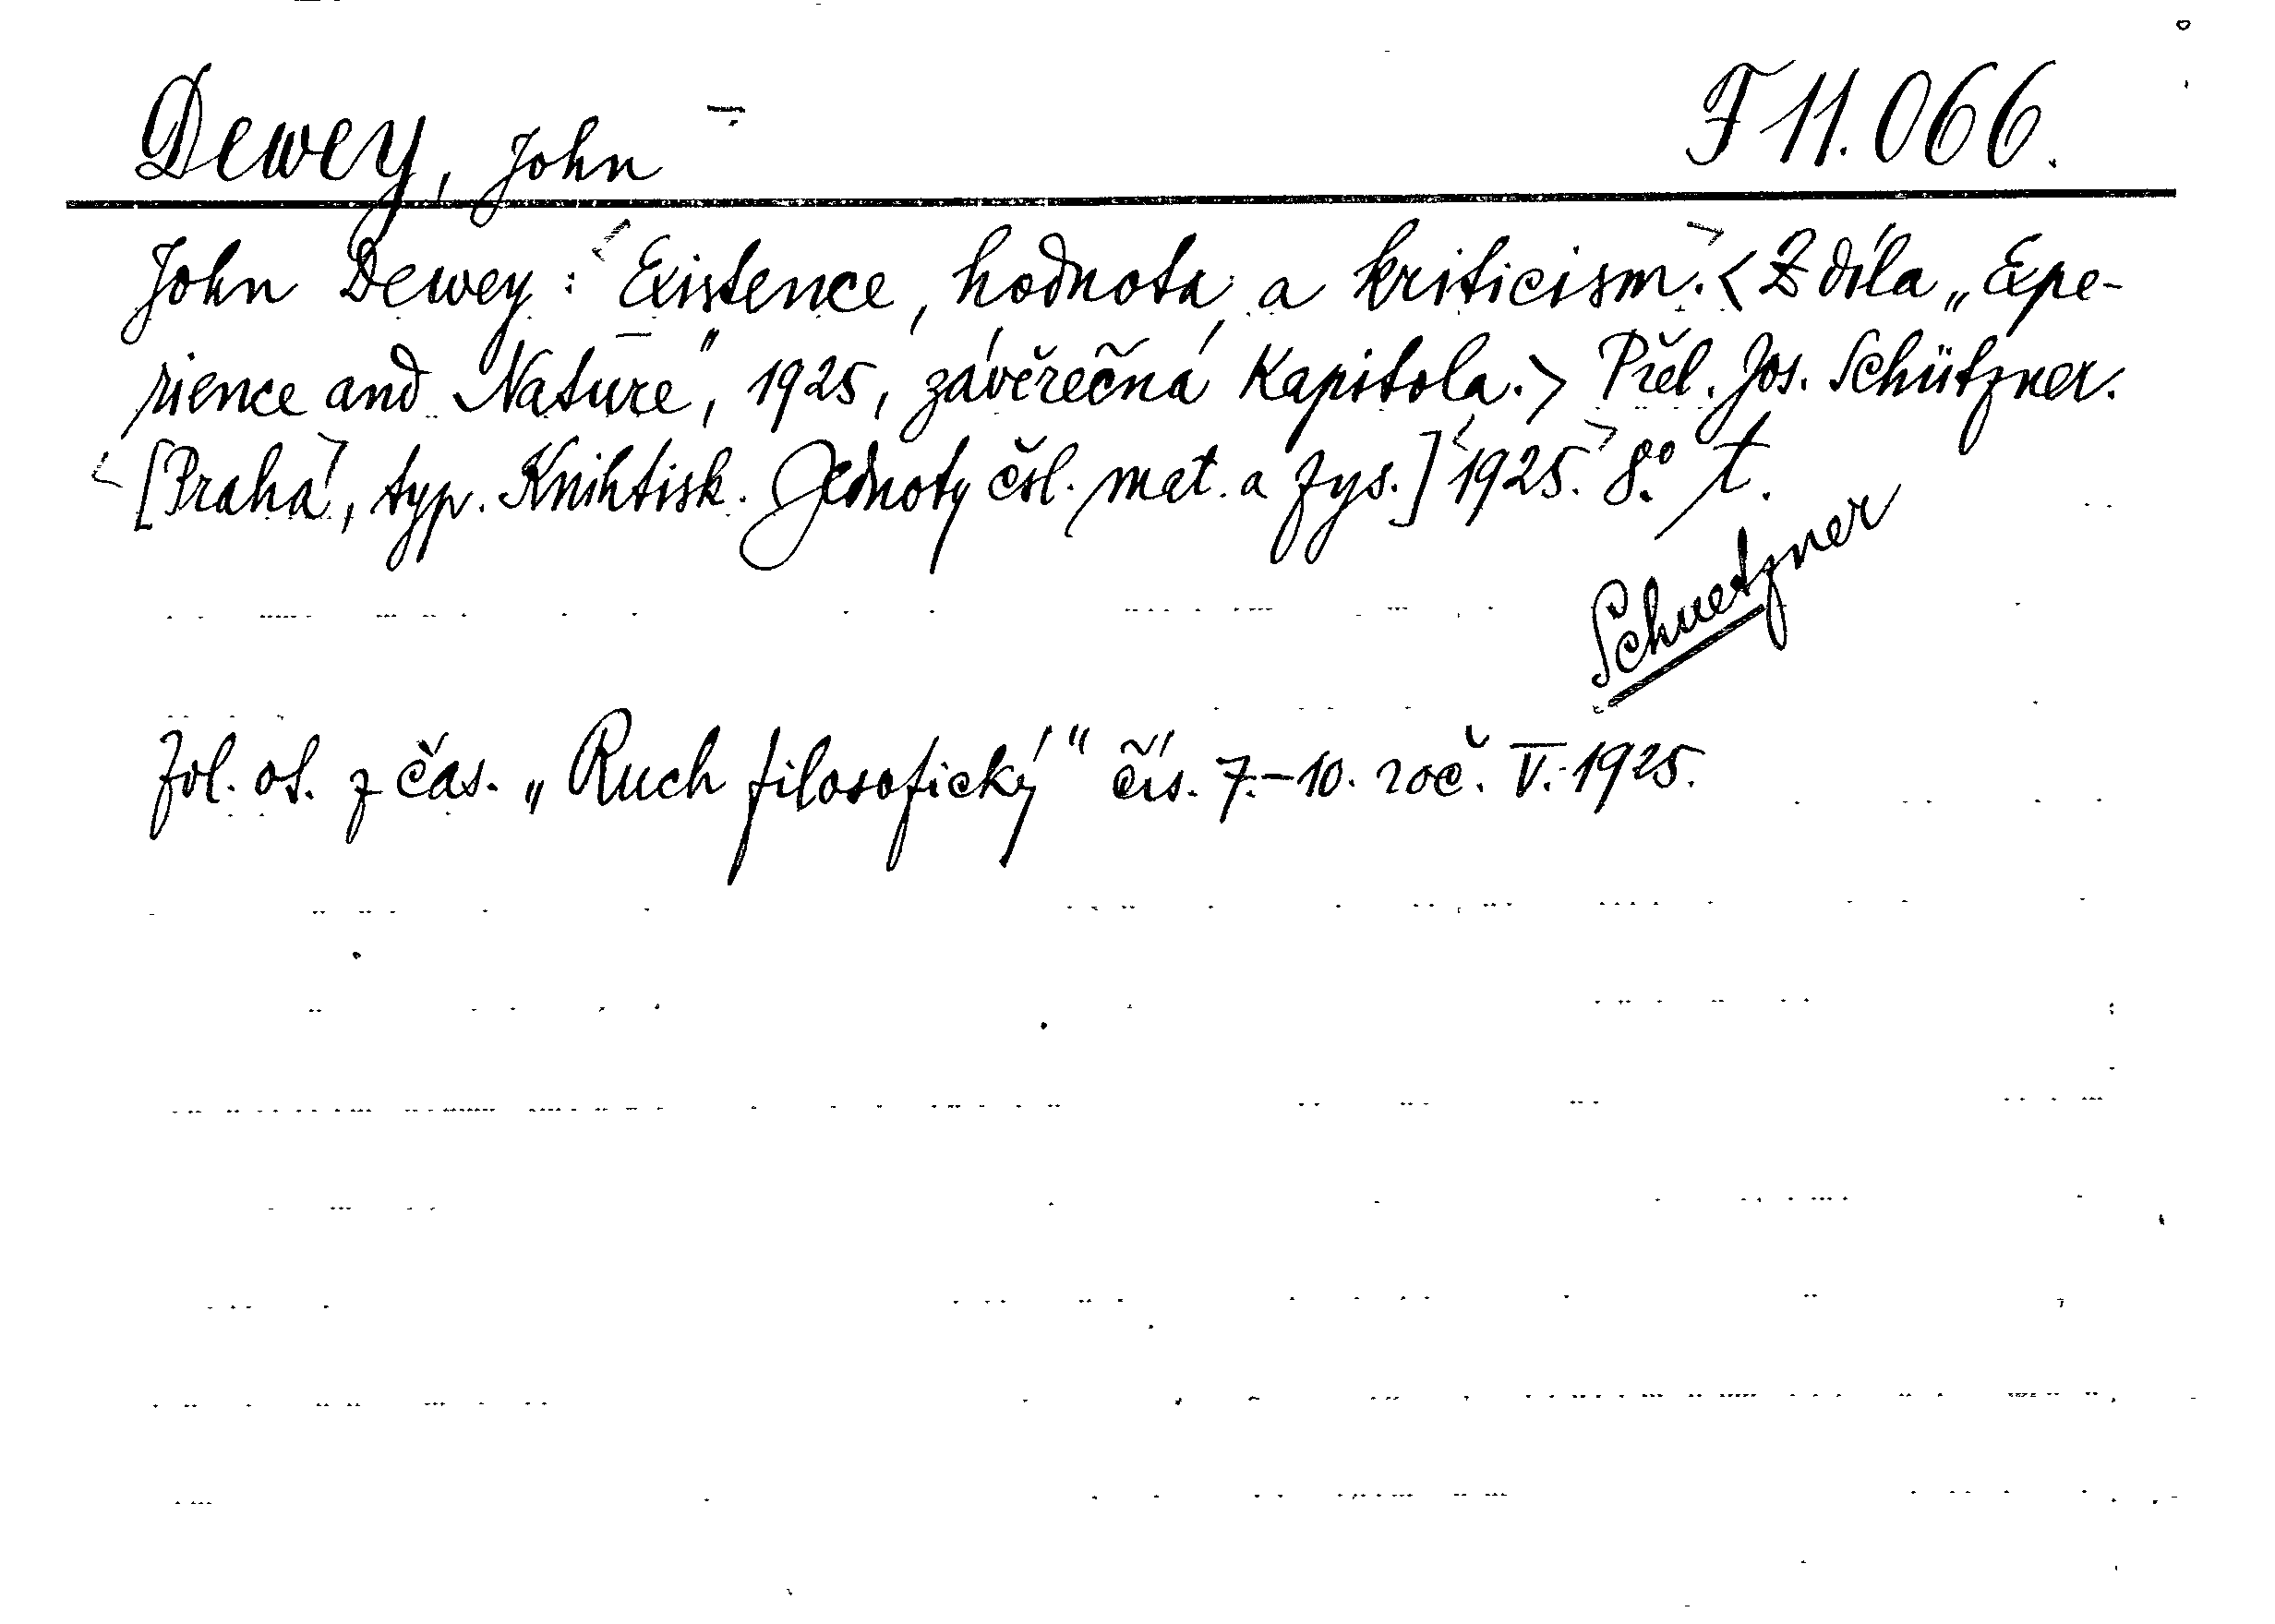 Dewey, John F 11.066.
John Dewey: <Existence, hodnota a kriticism.> <Z díla „Expe-
rience and Nature", 1925, závěrečná kapitola.> Přel. Jos. Schützner.
<[Praha>, typ. Knihtisk. Jednoty čsl. mat. a fys.] <1925.> 8.° t.
Schuetzner
Zvl. ot. z čas. „Ruch filosofický" čís. 7.–10. roč. V. 1925.